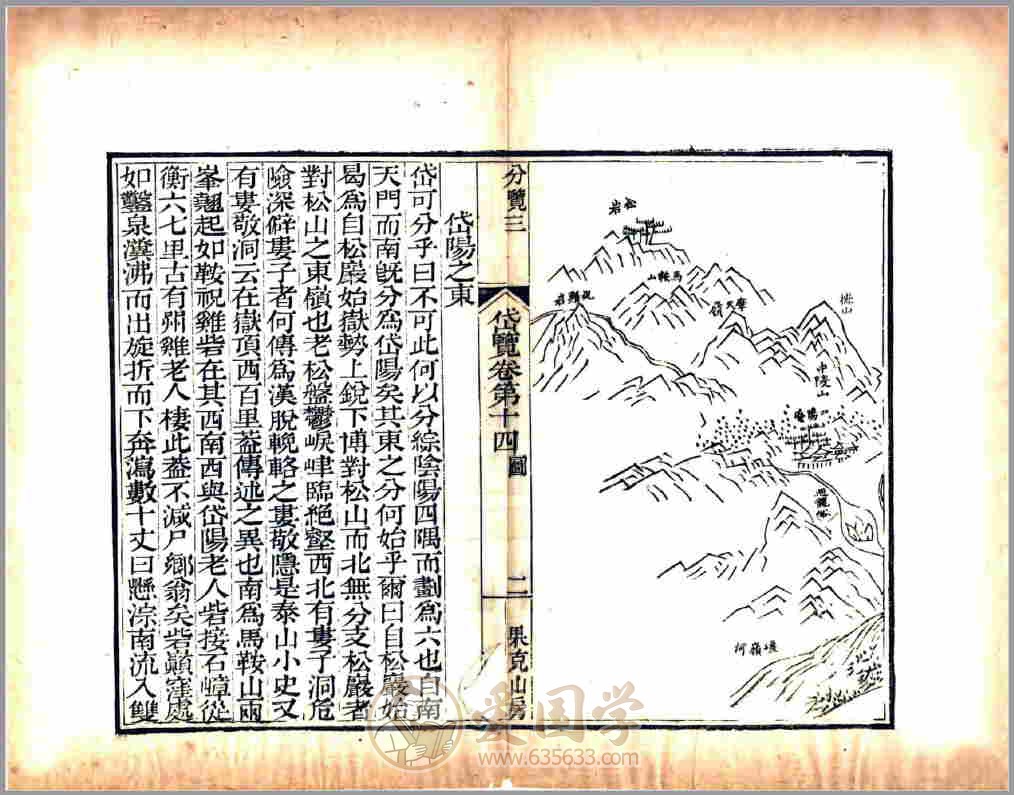 松岩
馬鞍山
摩天嶺
桃山
中陵山
迴龍峪
坡嶺河
分覽三
岱覽卷第十四
圖
二
果克山房
岱陽之東
岱可分乎曰不可此何以分綜陰陽四隅而劃爲六也自南
天門而南旣分爲岱陽矣其東之分何始乎爾曰自松巖始
曷爲自松巖始嶽勢上銳下博對松山而北無分支松巖者
對松山之東嶺也老松盤鬱崐峍臨絶壑西北有婁子洞危
險深僻婁子者何傳爲漢脫輓輅之婁敬隱是泰山小史又
有婁敬洞云在嶽頂西百里葢傳述之異也南爲馬鞍山兩
峯翹起如鞍祝雞砦在其西南西與岱陽老人砦接石嶂從
衡六七里古有𠰋雞老人棲此葢不減尸鄉翁矣砦巔窪處
如鑿泉瀵沸而出旋折而下奔瀉數十丈曰懸淙南流入雙
愛国学
www.635633.com